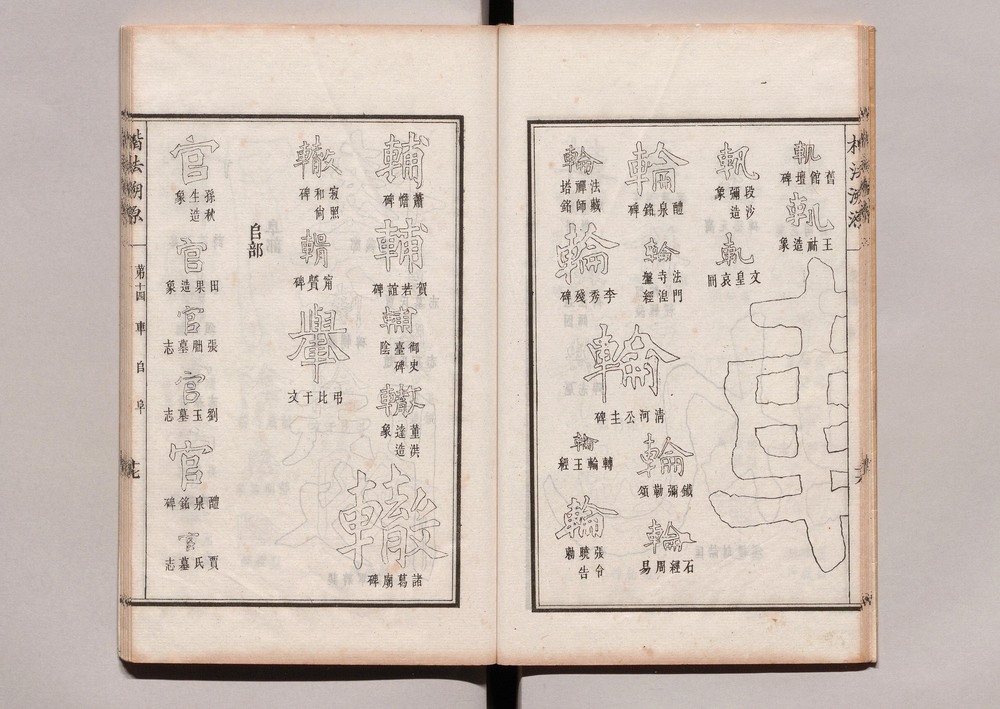 軌
舊館壇碑
軌
王祜造象
軌
段沙彌造象
軌
文皇哀冊
輪
醴泉銘碑
輪
法門寺湼盤經
輪
清河公主碑
輪
鐵彌勒頌
輪
石經周易
輪
法藏禪師塔銘
輪
李秀殘碑
輪
轉輪王經
輪
張令告勑
輔
蕭憺碑
輔
賀若誼碑
輔
御史臺碑陰
轍
董洪達造象
轍
諸葛廟碑
轍
寂照和尚碑
輯
甯贙碑
轝
弔比干文
𠂤部
官
孫秋生造象
官
田果造象
官
張墓志
官
劉玉墓志
官
醴泉銘碑
官
賈氏墓志
楷法溯源
第十四 車 𠂤 阜